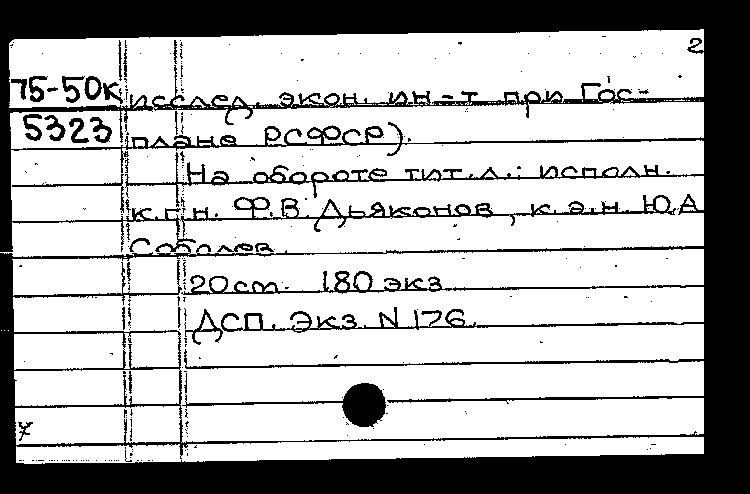 2
75-50к исслед. экон. ин-т при Гос-
5323 плане РСФСР).
На обороте тит.л.: исполн.
к.г.н. Ф.В. Дьяконов, к.э.н. Ю.А
Соболев.
20 см. 180 экз
ДСП. Экз. N 176.